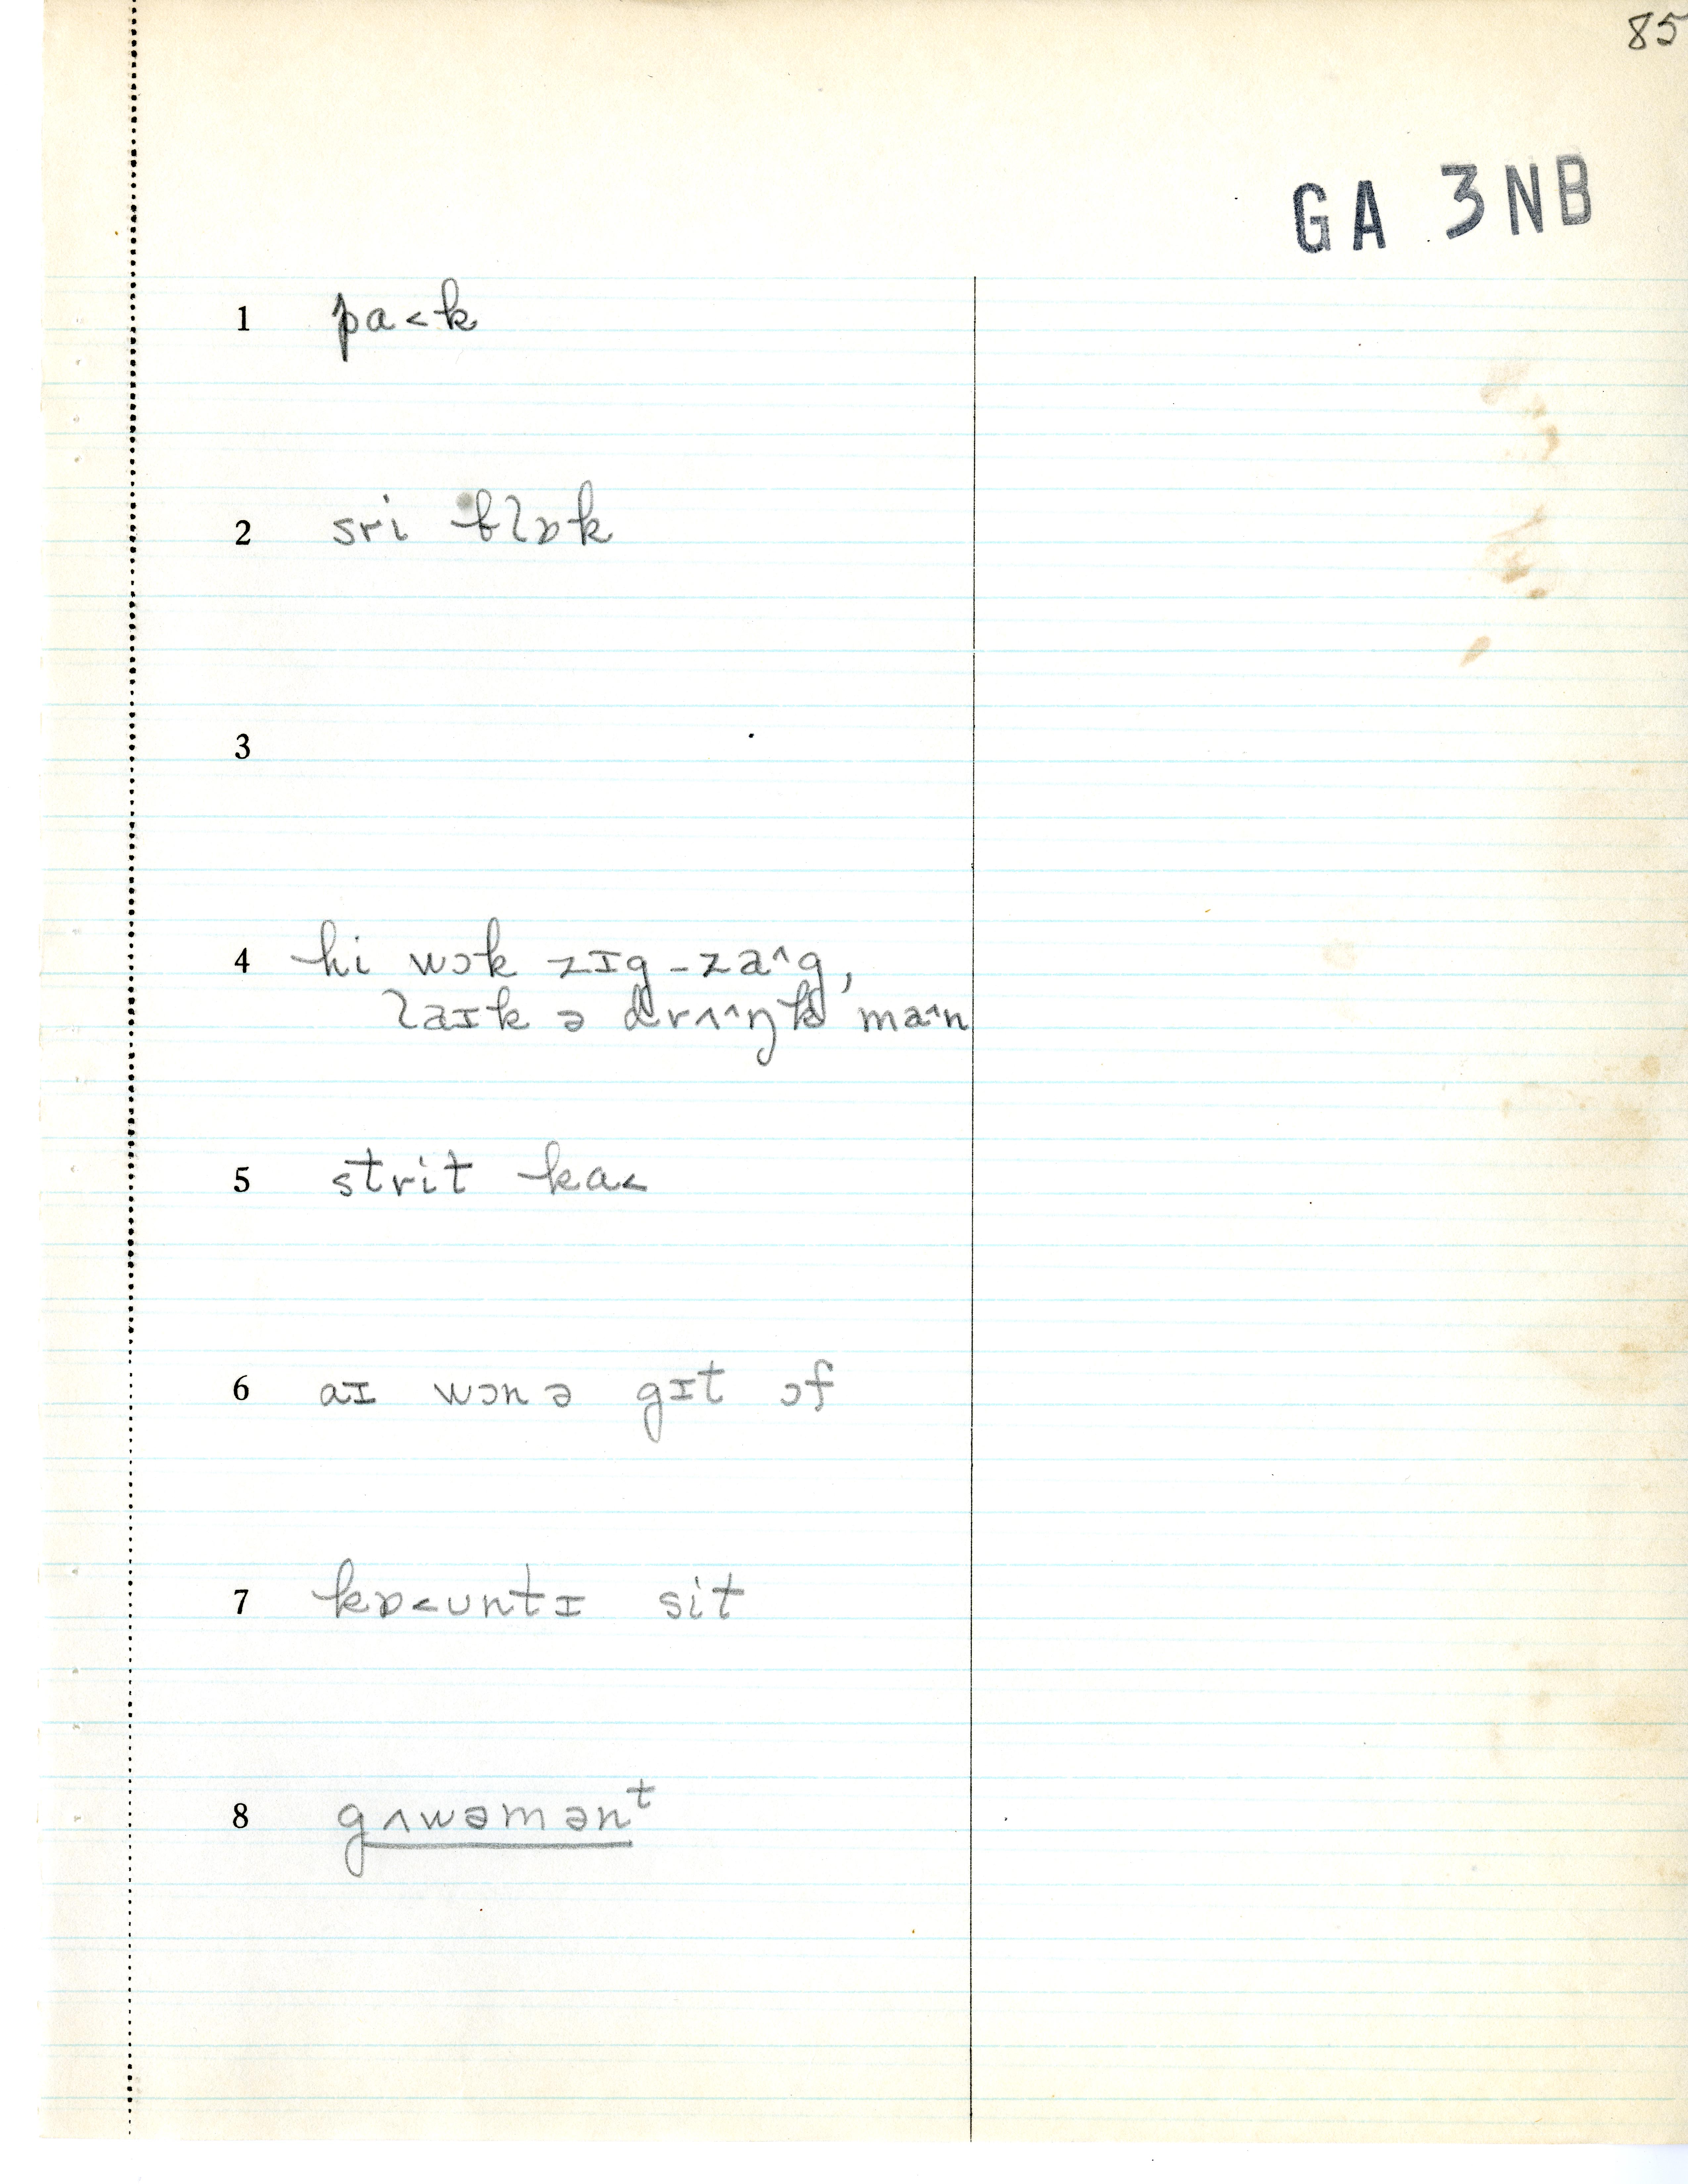 85
GA 3NB
1 pa˂k
2 sri blɒk
3
4 hi wɔk zɪg-za˄g,
laɪk ə drʌ˄ŋk ma˄n
5 strit ka˂
6 aɪ wɔn ə gɪt ɔf
7 kɒ˂ʊntɪ sit
8 gʌwəmənᵗ